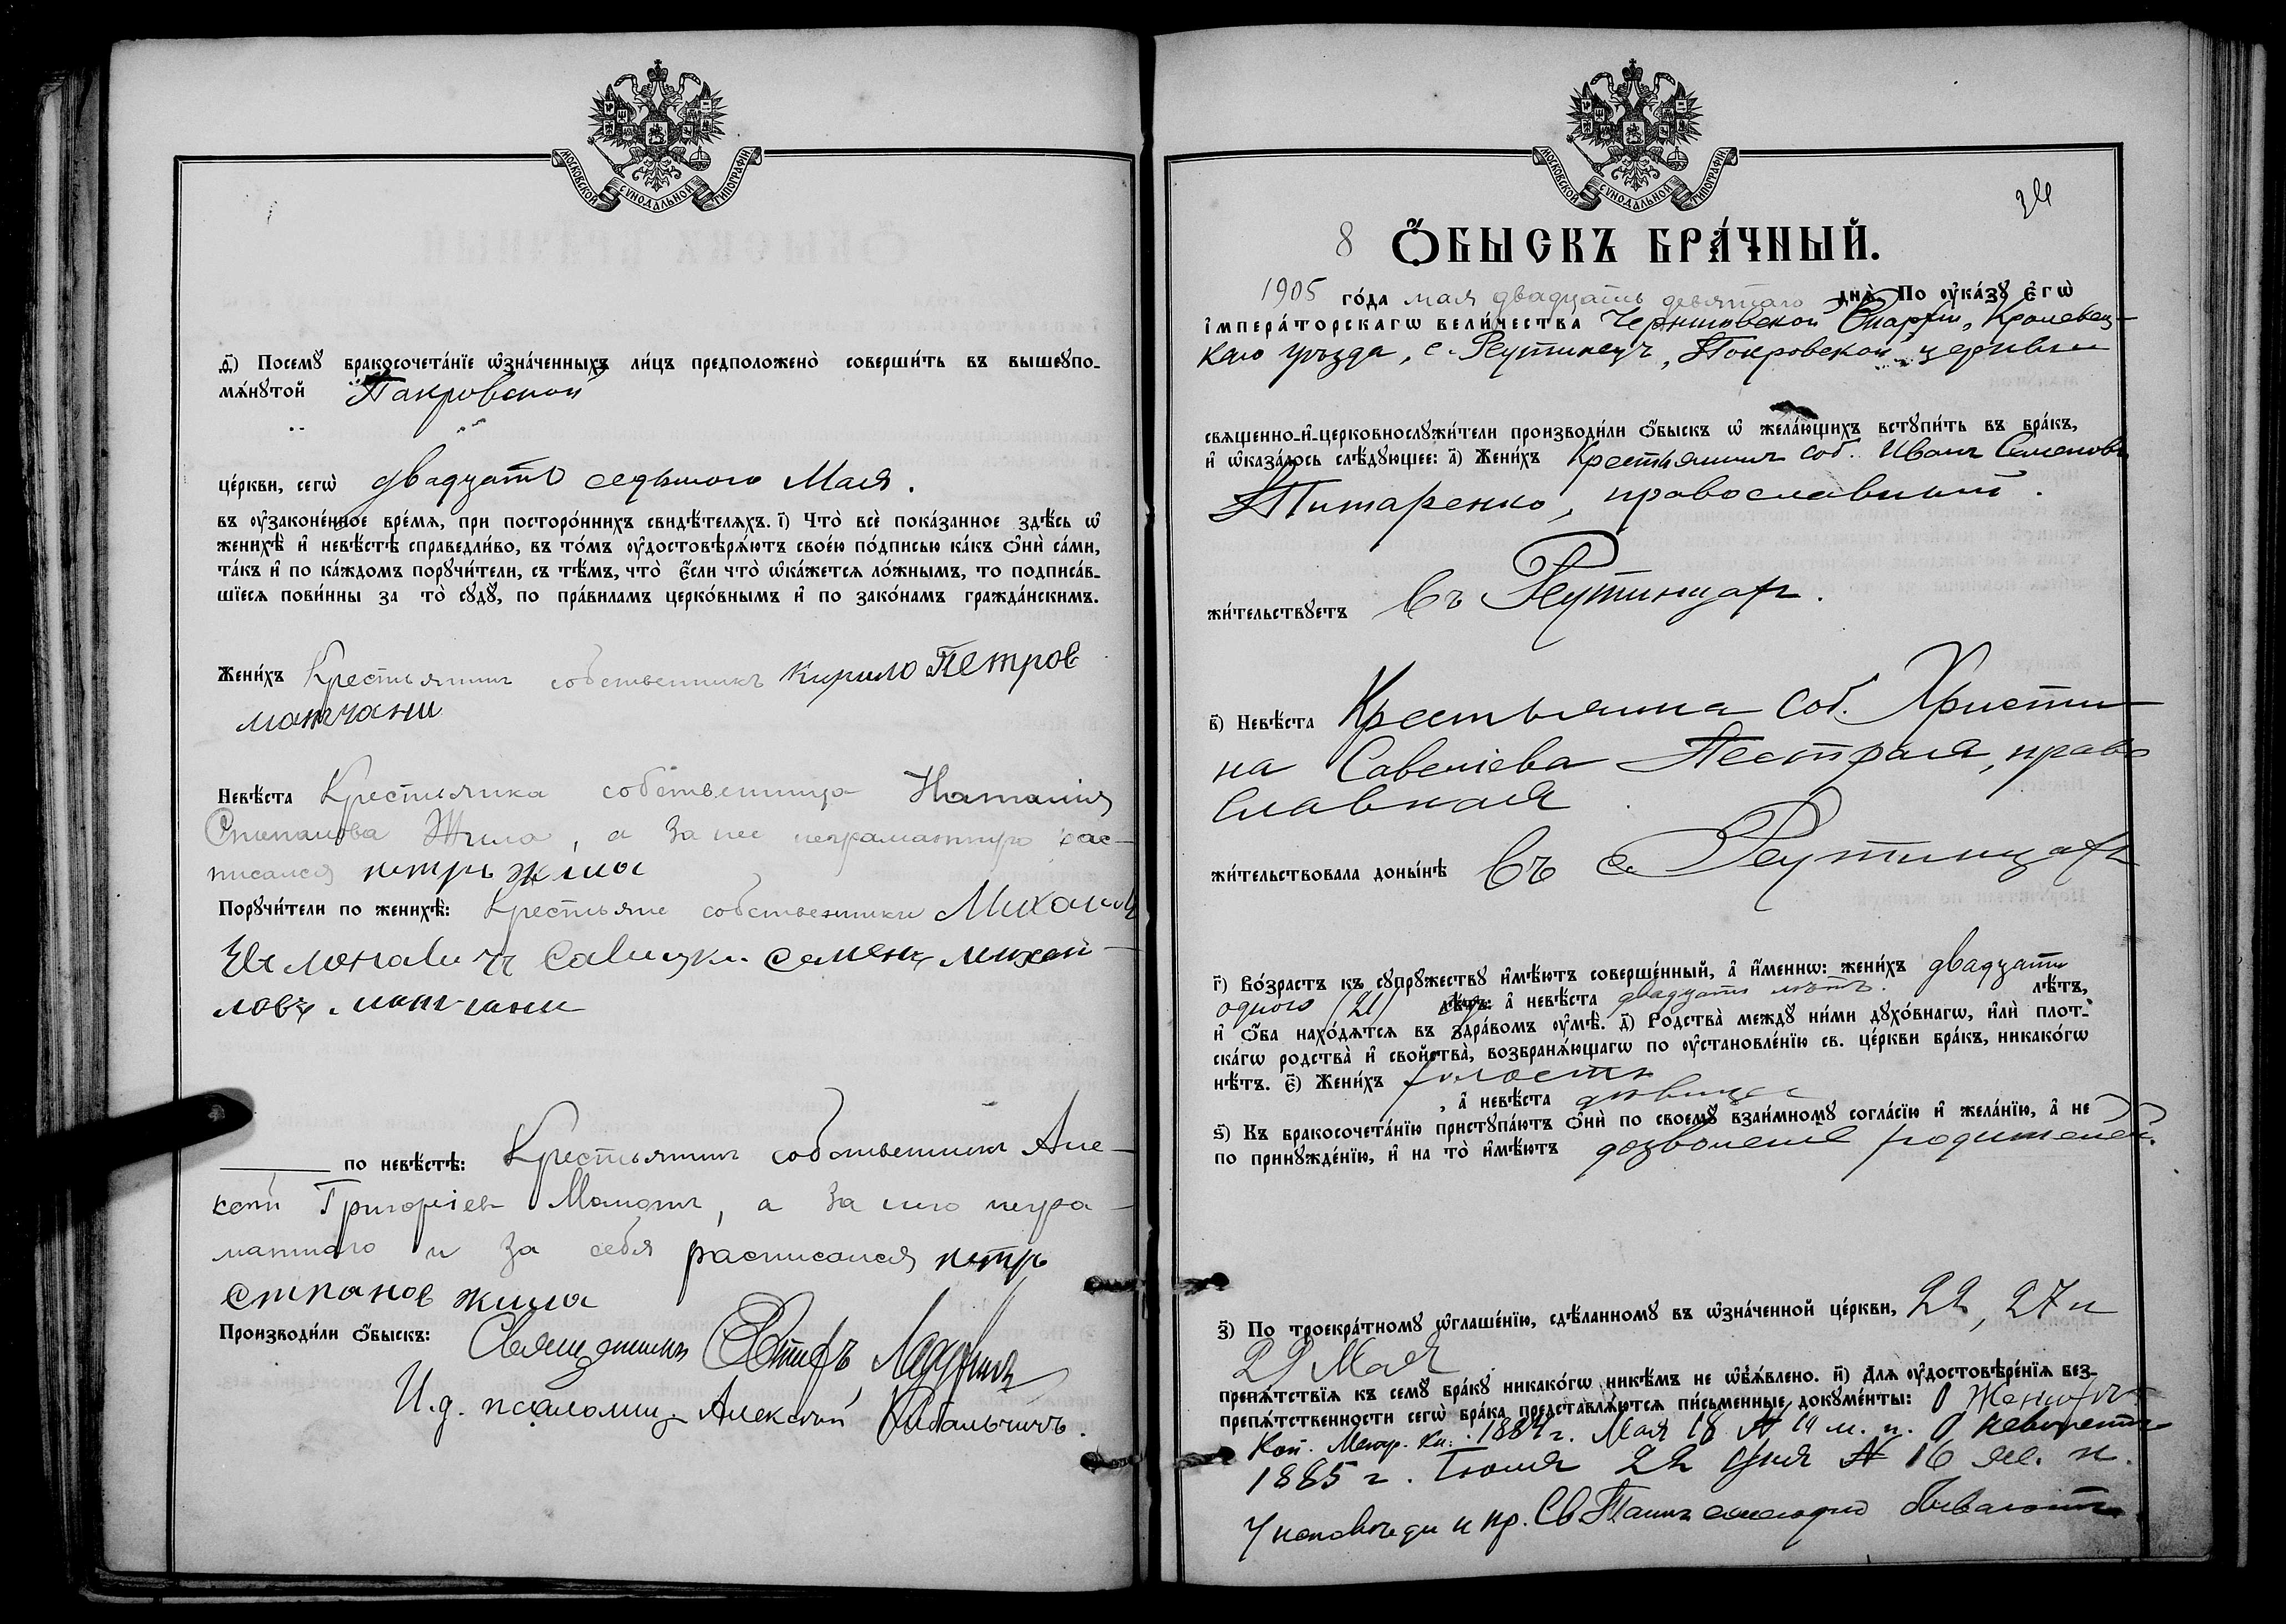 МОСКОВСКОЙ СѴНОДАЛЬНОЙ ТИПОГРАФІИ.
д҃і) Посемꙋ бракосочета́нїе ѡ҆зна́ченныхъ ли́цъ предположено̀ соверши́ть въ вышеꙋпо-
мѧ́нꙋтой Покровской
це́ркви, сегѡ̀ двадцать седьмого Мая.
въ ᲂу҆законе́нное вре́мѧ, при посторо́ннихъ свидѣ́телѧхъ. і҃) Что̀ всѐ пока́занное здѣ́сь ѡ҆
женихѣ̀ и҆ невѣ́стѣ справедли́во, въ то́мъ ᲂу҆достовѣрѧ́ютъ свое́ю по́дписью ка́къ ѻ҆нѝ са́ми,
та́къ и҆ по ка́ждомъ порꙋчи́тели, съ тѣ́мъ, что̀ є҆́сли что̀ ѡ҆ка́жетсѧ ло́жнымъ, то подписа́в-
шїесѧ пови́нны за то̀ сꙋдꙋ̀, по пра́виламъ церко́внымъ и҆ по зако́намъ гражда́нскимъ.
Жени́хъ Крестьянинъ собственникъ Кирило Петров
мончани
Невѣ́ста Крестьянка собственница Наталия
Степанова Жила, а за нее неграмотную рас-
писался петръ жила
Порꙋчи́тели по женихѣ̀: Крестьяне собственники Михаилъ
Савицки семенъ михай-
ловъ мончани
по невѣ́стѣ: Крестьянинъ собственникъ Але-
ксѣй Григорiев , а за него негра-
мотнаго и за себя расписался петръ
степанов жила
Производи́ли ѻ҆́быскъ: Священникъ
И.д. псаломщ. Алексѣй Кибальчичъ.
МОСКОВСКОЙ СѴНОДАЛЬНОЙ ТИПОГРАФІИ.
8 Ѻ҆́БЫСКЪ БРА́ЧНЫЙ.
1905 го́да мая двадцать девятаго днѧ̀. По ᲂу҆ка́зꙋ є҆гѡ̀
і҆мпера́торскагѡ вели́чества Черниговской Епархiи, Кролевец-
каго уѣзда, с. Реутинецъ, Покровской церкви
свѧщенно-и҆-церковнослꙋжи́тели производи́ли ѻ҆́быскъ ѡ҆ жела́ющихъ встꙋпи́ть въ бра́къ,
и҆ ѡ҆каза́лось слѣ́дꙋющее: а҃) Жени́хъ Крестьянинъ соб. Иванъ Семеновъ
Питаренко, православный.
жи́тельствꙋетъ въ Реутинцахъ.
в҃) Невѣ́ста Крестьянка соб. Христи-
на Савелiева Пестрая, право
славная
жи́тельствовала доны́нѣ въ с. Реутинцахъ
г҃) Во́зрастъ къ сꙋпрꙋ́жествꙋ и҆мѣ́ютъ соверше́нный, а҆ и҆́меннѡ: жени́хъ двадцати
одного (21) лѣ́тъ: а҆ невѣ́ста двадцать лѣтъ. лѣ́тъ,
и҆ ѻ҆́ба нахо́дѧтсѧ въ здра́вомъ ᲂу҆мѣ̀. д҃) Родства̀ междꙋ ни́ми дꙋхо́внагѡ, и҆лѝ плот-
ска́гѡ родства̀ и҆ сво́йства, возбранѧ́ющагѡ по ᲂу҆становле́нїю св. це́ркви бра́къ, никако́гѡ
нѣ́тъ. є҃) Жени́хъ холостъ
, а҆ невѣ́ста дѣвица
ѕ҃) Къ бракосочета́нїю пристꙋпа́ютъ ѻ҆нѝ по своемꙋ̀ взаи́мномꙋ согла́сїю и҆ жела́нїю, а҆ не
по принꙋжде́нїю, и҆ на то̀ и҆мѣ́ютъ дозволенiе родителей.
з҃) По троекра́тномꙋ ѡ҆глаше́нїю, сдѣ́ланномꙋ въ ѡ҆зна́ченной це́ркви, 22, 27 и
29 Мая
препѧ́тствїѧ къ семꙋ̀ бра́кꙋ никако́гѡ никѣ́мъ не ѡ҆бѧ́влено. и҃) Для ᲂу҆достовѣре́нїѧ без-
препѧ́тственности сегѡ̀ бра́ка представлѧ́ютсѧ пи́сьменные докꙋме́нты: О Женихѣ
Коп. Метр. Кн. 1884 г. Мая 18 № 19 м. п. О невѣстѣ
1885 г. Iюля 22 дня № 16 м. п.
У исповѣди и пр. Св. Таинъ ежегодно бываютъ.